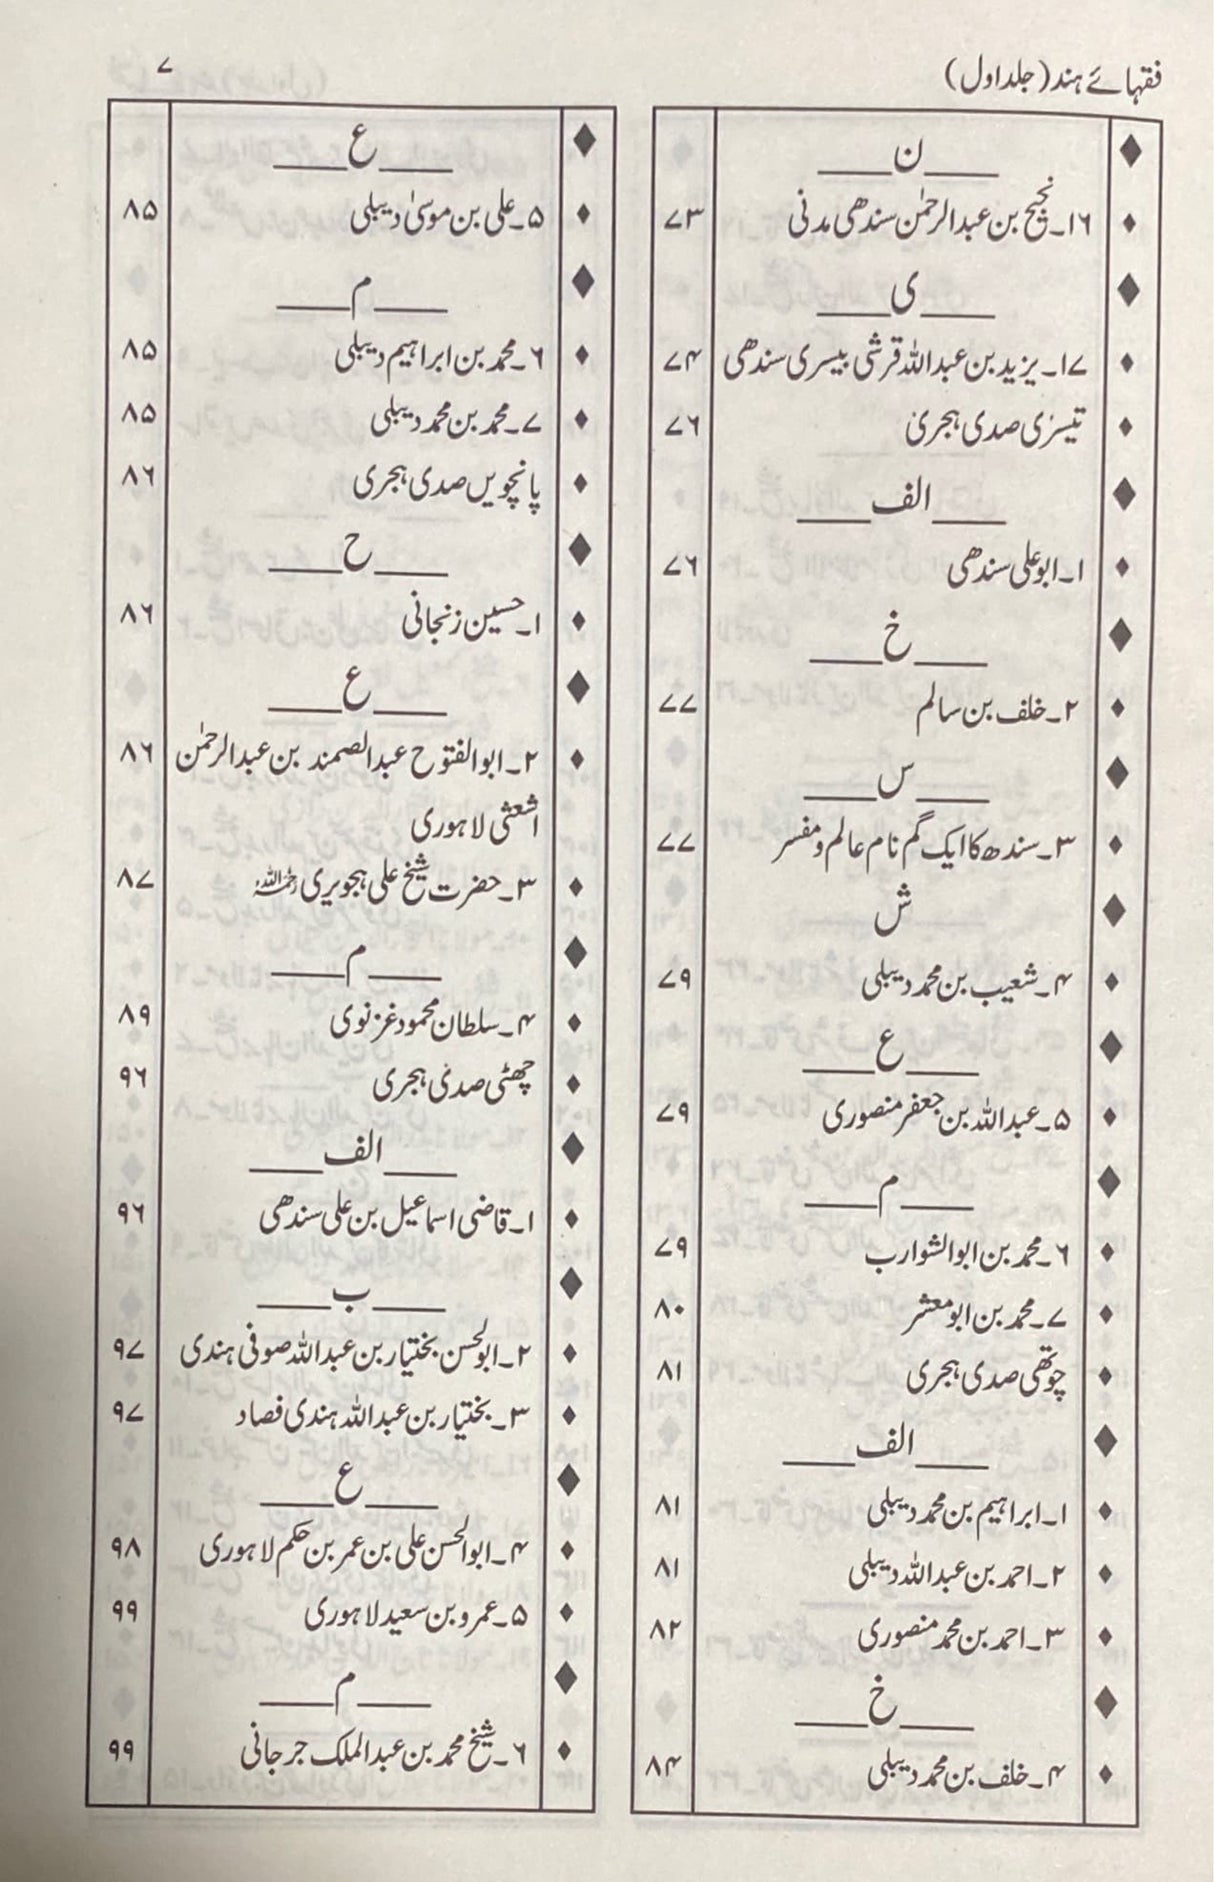 فقہائے ہند (جلد اول)
۷
ن
۱۶۔ نجیح بن عبدالرحمٰن سندھی مدنی ۷۳
ی
۱۷۔ یزید بن عبداللہ قرشی بیسری سندھی ۷۴
تیسری صدی ہجری ۷۶
الف
۱۔ ابوعلی سندھی ۷۶
خ
۲۔ خلف بن سالم ۷۷
س
۳۔ سندھ کا ایک گم نام عالم و مفسر ۷۷
ش
۴۔ شعیب بن محمد دیبلی ۷۹
ع
۵۔ عبداللہ بن جعفر منصوری ۷۹
م
۶۔ محمد بن ابوالشوارب ۷۹
۷۔ محمد بن ابومعشر ۸۰
چوتھی صدی ہجری ۸۱
الف
۱۔ ابراہیم بن محمد دیبلی ۸۱
۲۔ احمد بن عبداللہ دیبلی ۸۱
۳۔ احمد بن محمد منصوری ۸۲
خ
۴۔ خلف بن محمد دیبلی ۸۴
ع
۵۔ علی بن موسیٰ دیبلی ۸۵
م
۶۔ محمد بن ابراہیم دیبلی ۸۵
۷۔ محمد بن محمد دیبلی ۸۵
پانچویں صدی ہجری ۸۶
ح
۱۔ حسین زنجانی ۸۶
ع
۲۔ ابوالفتوح عبدالصمند بن عبدالرحمٰن ۸۶
اشعثی لاہوری
۳۔ حضرت شیخ علی ہجویری رحمہ اللہ ۸۷
م
۴۔ سلطان محمود غزنوی ۸۹
چھٹی صدی ہجری ۹۶
الف
۱۔ قاضی اسماعیل بن علی سندھی ۹۶
ب
۲۔ ابوالحسن بختیار بن عبداللہ صوفی ہندی ۹۷
۳۔ بختیار بن عبداللہ ہندی فصاد ۹۷
ع
۴۔ ابوالحسن علی بن عمر بن حکم لاہوری ۹۸
۵۔ عمرو بن سعید لاہوری ۹۹
م
۶۔ شیخ محمد بن عبدالملک جرجانی ۹۹